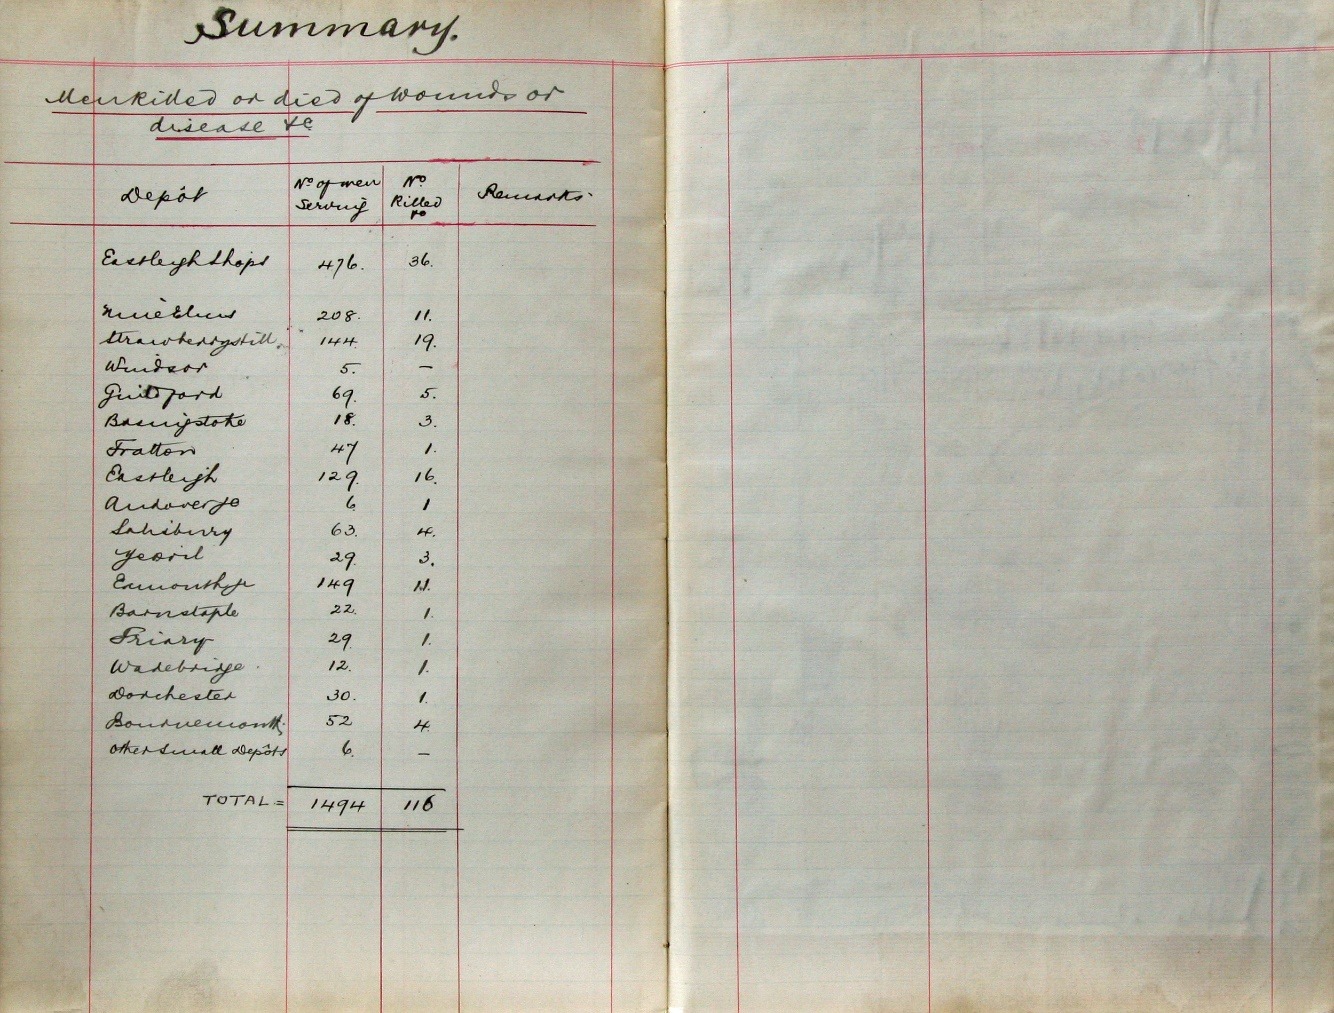 Summary.
Men Killed or died of Wounds or
disease &c
Depôt No of men Serving No Killed &c Remarks
Eastleigh Shops 476. 36.
Nine Elms 208. 11.
Strawberry Hill. 144. 19.
Windsor 5. —
Guildford 69. 5.
Basingstoke 18. 3.
Fratton 47 1.
Eastleigh 129. 16.
Andover Jc 6. 1
Salisbury 63. 4.
Yeovil 29. 3.
Exmouth Jc 149 11.
Barnstaple 22. 1.
Friary 29. 1.
Wadebridge. 12. 1.
Dorchester 30. 1.
Bournemouth 52 4.
Other Small Depôts 6. —
TOTAL = 1494 116